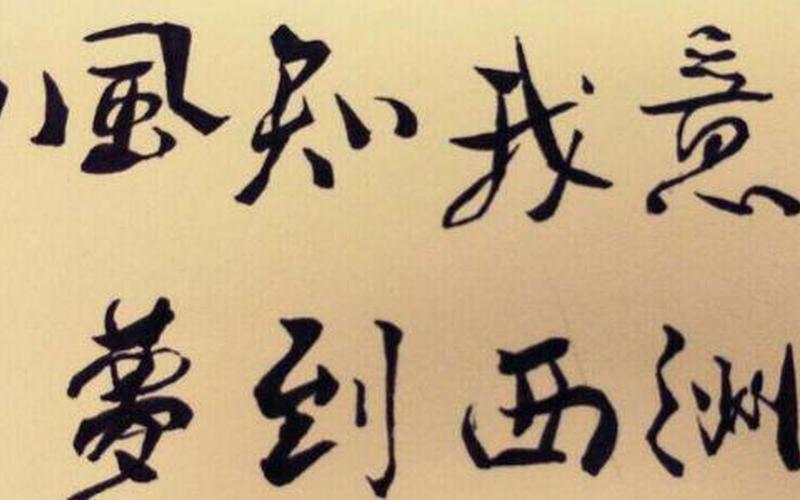 風知我意
夢到西洲